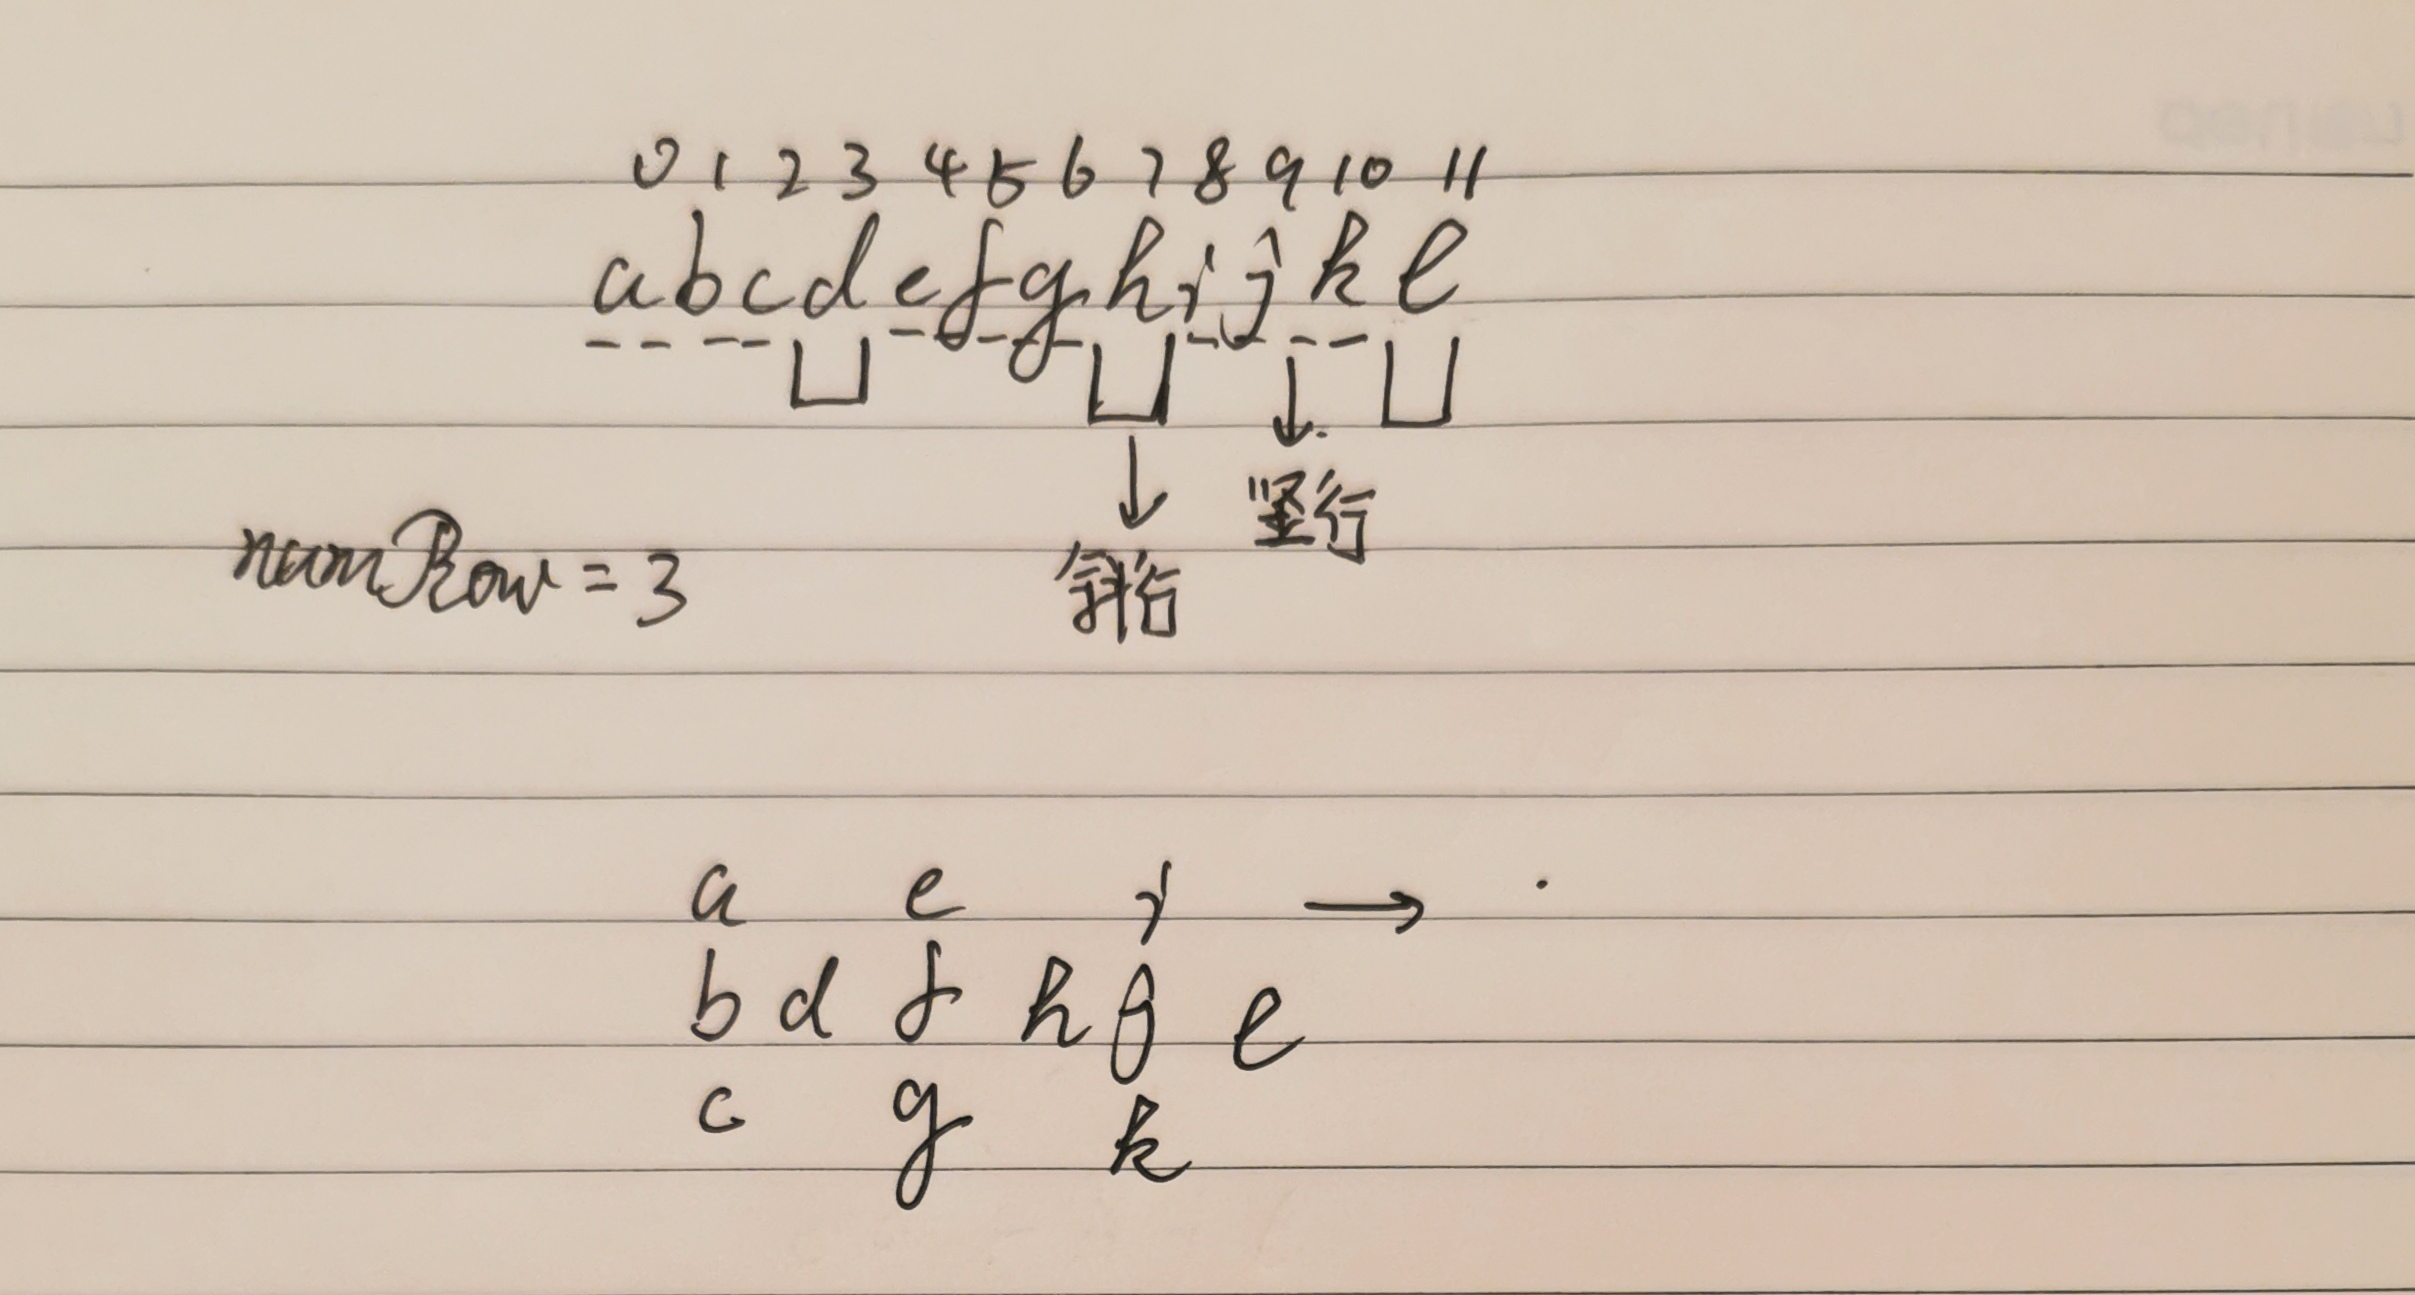 0 1 2 3 4 5 6 7 8 9 10 11
a b c d e f g h i j k l
竖行
numRow = 3
斜行
a e i →
b d f h j l
c g k